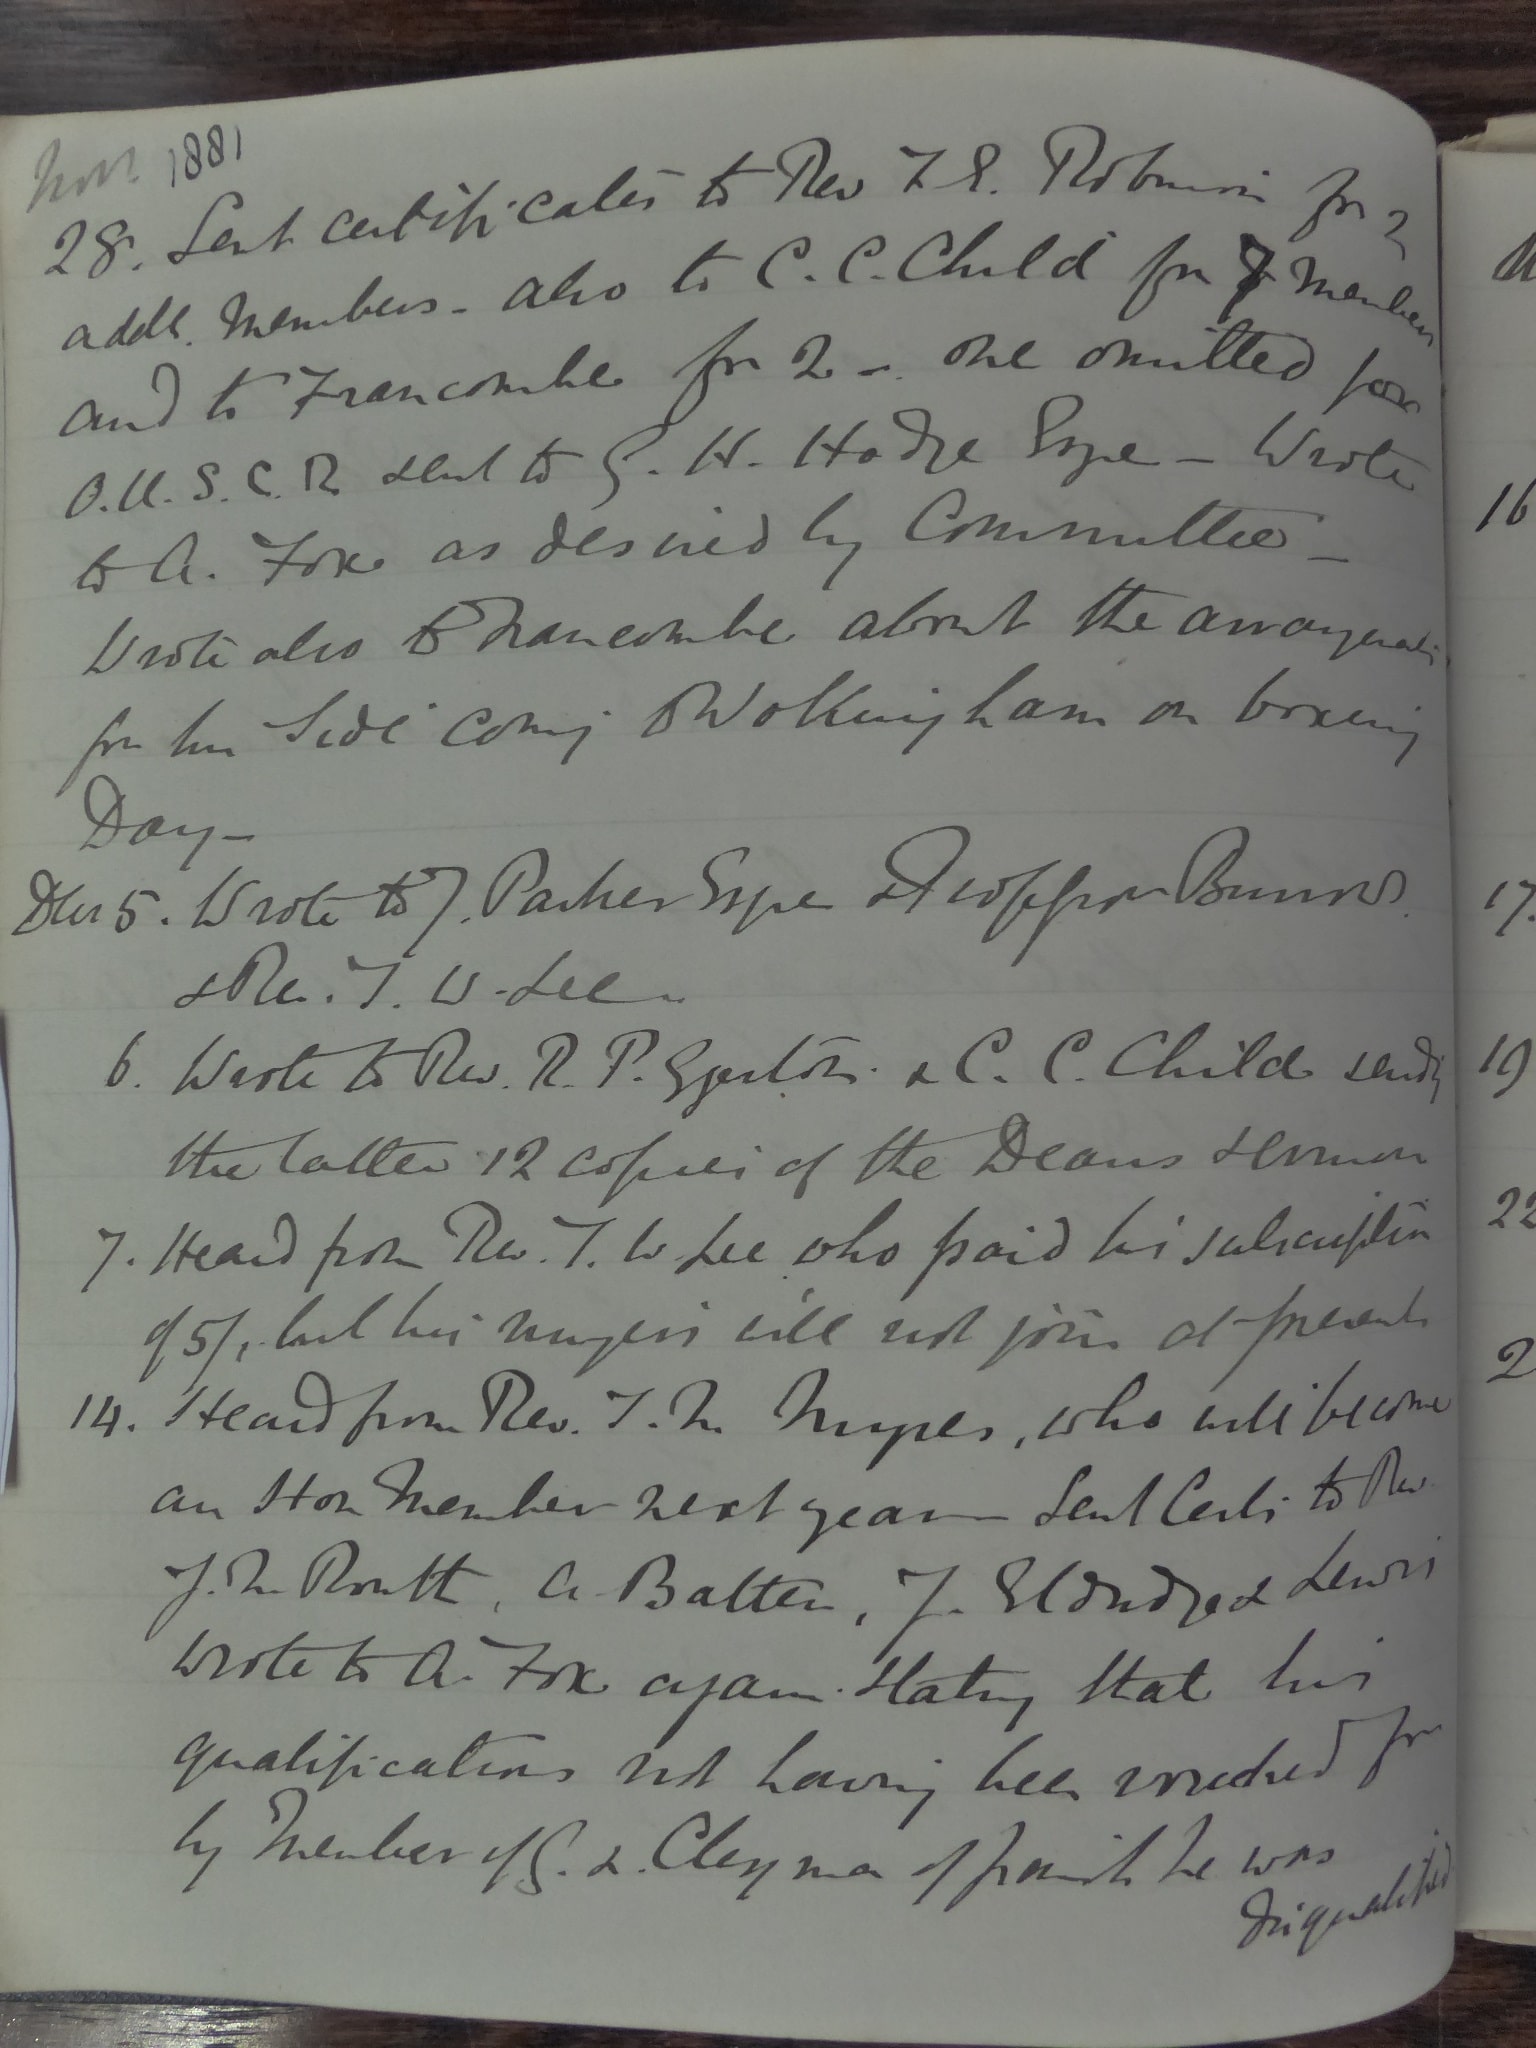 Novr. 1881
28. Sent certificates to Rev F. E. Robinson for 2
addl. Members - also to C. C. Child for 7 Members
and to Francombe for 2 - one omitted for
O.U.S.C.R sent to G. H. Hodge Esqre - Wrote
to A. Fox as desired by Committee -
Wrote also to Francombe about the arrangements
for his Side coming to Wokingham on boxing
Day -
Decr 5. Wrote to J. Parker Esqre & Proffessor Burrows.
& Rev. T. W. Lee
6. Wrote to Rev. R. P. Egerton. & C. C. Child sending
the latter 12 copies of the Deans sermon
7. Heard from Rev. T. W Lee who paid his subscription
of 5/, but his ringers will not join at present
14. Heard from Rev. T. N. Nugee, who will become
an Hon Member next year - Sent Certs to Rev.
J. N. Routh, A. Batten, J. Eldridge & Lewis
wrote to A. Fox again stating that his
qualifications not having been vouched for
by Member of G. & Clergyman of parish he was
disqualified
16
17.
19
22
2